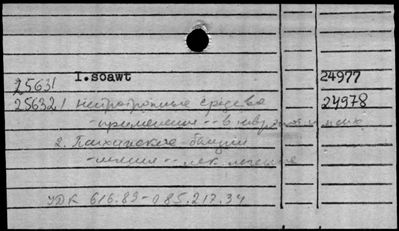 I.soawt
25631 24977
25632 1 Нейротропные средства 24978
- применение -- в невр
2. Психические болезни
- - лек. лечение
УДК 616.89-085.217.34